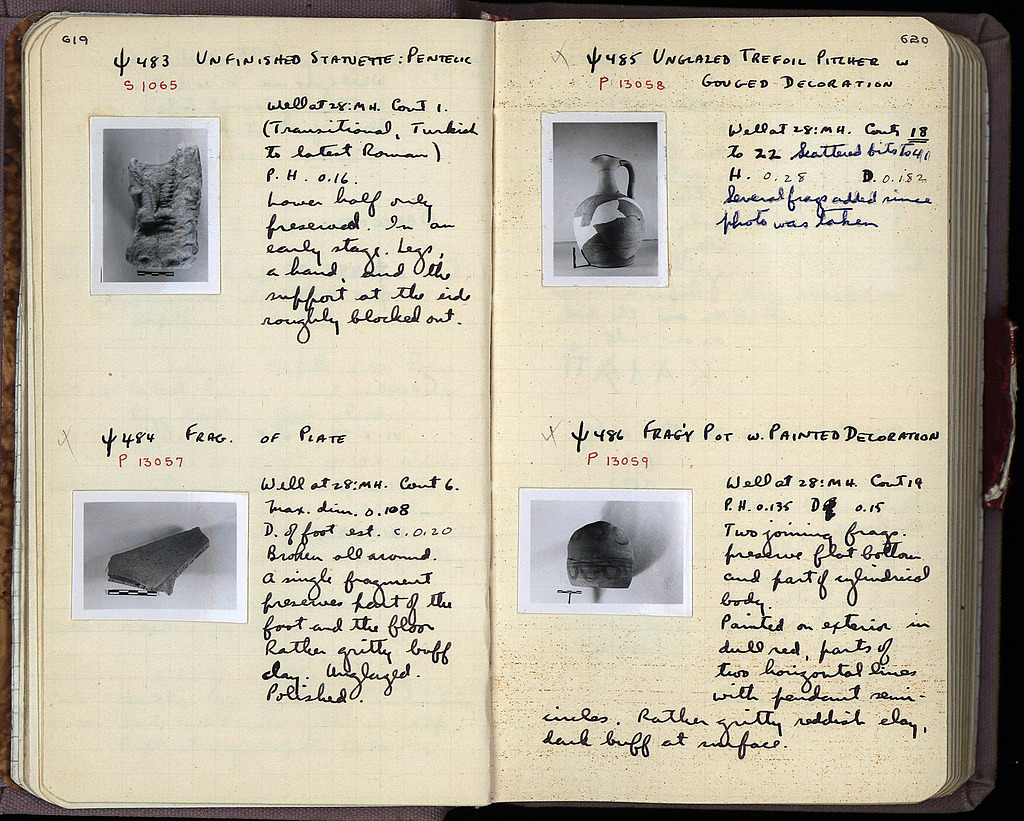 619
ψ 483 UNFINISHED STATUETTE: PENTELIC
S 1065
Well at 28:MH. Cont 1.
(Transitional, Turkish
to latest Roman)
P.H. 0.16.
Lower half only
preserved. In an
early stage. Legs,
a hand, and the
support at the side
roughly blocked out.
ψ 484 FRAG. OF PLATE
P 13057
Well at 28:MH. Cont 6.
Max. dim. 0.108
D. of foot est. c. 0.20
Broken all around.
A single fragment
preserves part of the
foot and the floor
Rather gritty buff
clay. Unglazed.
Polished.
620
ψ 485 UNGLAZED TREFOIL PITCHER W
P 13058 GOUGED DECORATION
Well at 28:MH. Cont 18
to 22 Scattered bits to 41
H. 0.28 D. 0.182
Several frags added since
photo was taken
ψ 486 FRAG'Y POT W. PAINTED DECORATION
P 13059
Well at 28:MH. Cont 19
P.H. 0.135 D 0.15
Two joining frags.
preserve flat bottom
and part of cylindrical
body.
Painted on exterior in
dull red, parts of
two horizontal lines
with pendant semi-
circles. Rather gritty reddish clay,
dark buff at surface.